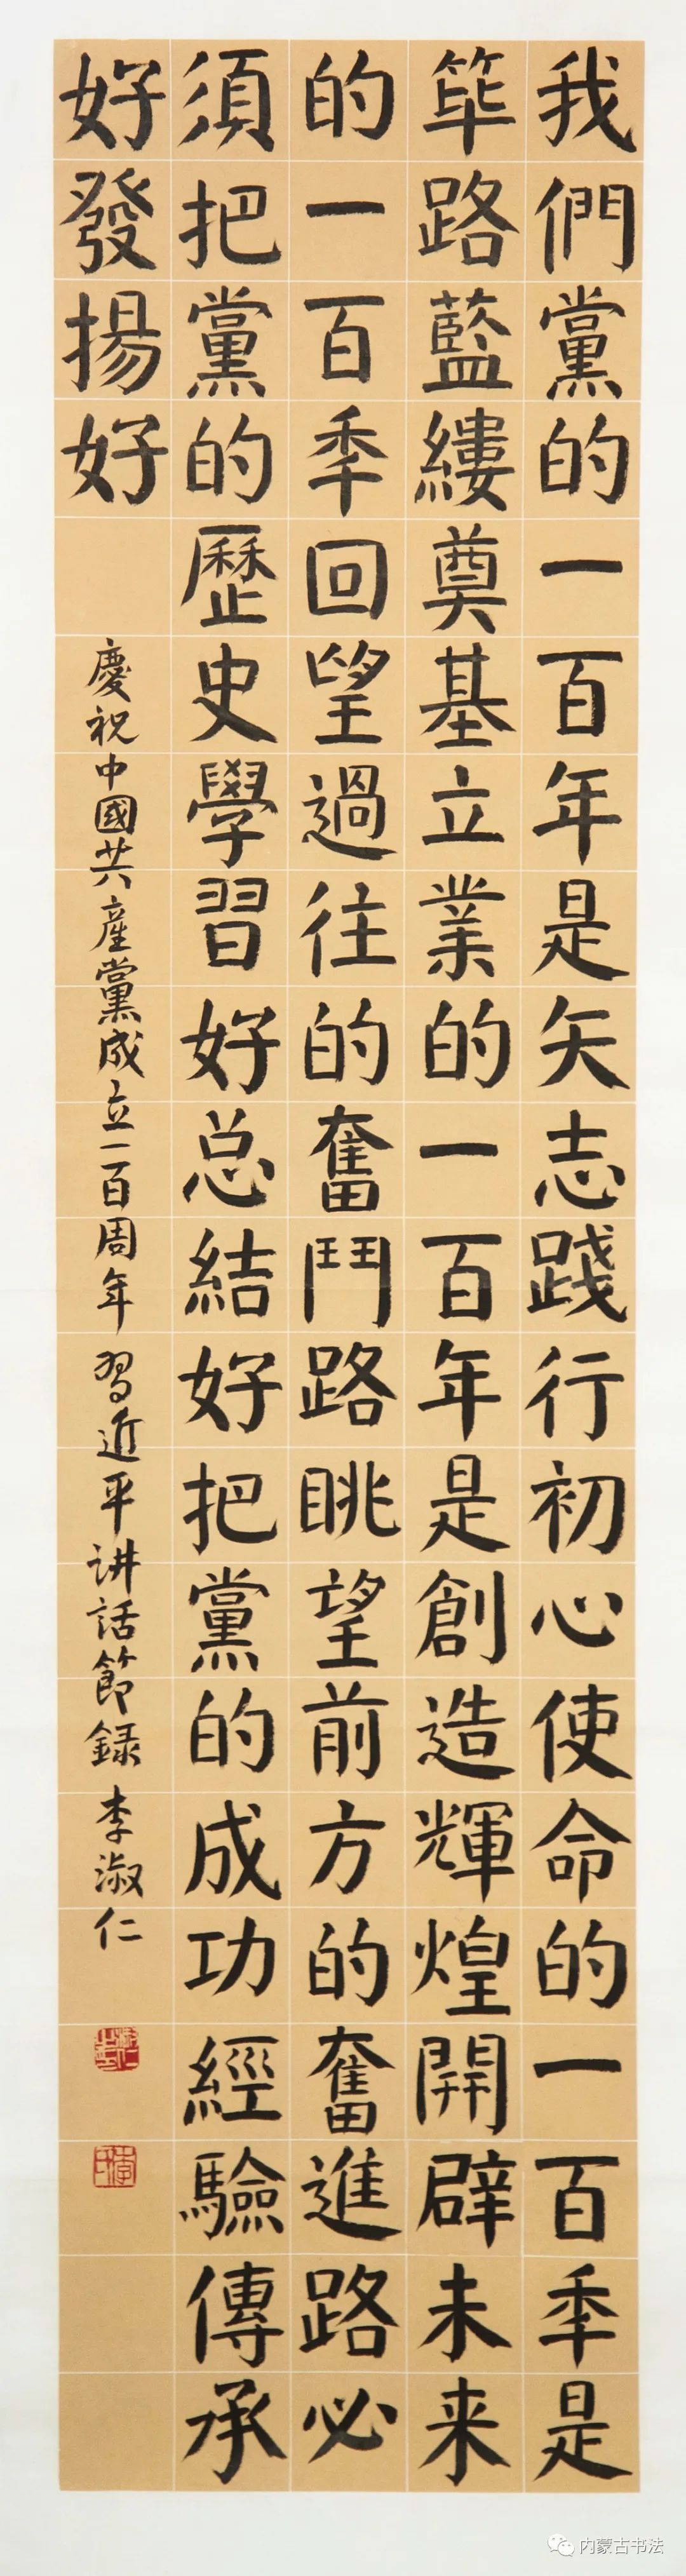 我們黨的一百年是矢志踐行初心使命的一百秊是
筚路藍縷奠基立業的一百年是創造輝煌開辟未来
的一百秊回望過往的奮鬥路眺望前方的奮進路必
須把黨的歷史學習好总結好把黨的成功經驗傳承
好發揚好
慶祝中國共產黨成立一百周年 習近平讲話節録 李淑仁
内蒙古书法